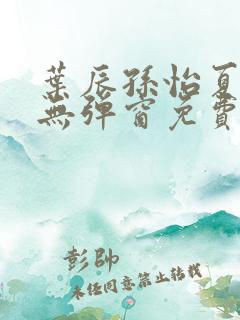 葉辰孫怡夏
無彈窗免費
彭帥
未经同意禁止转载